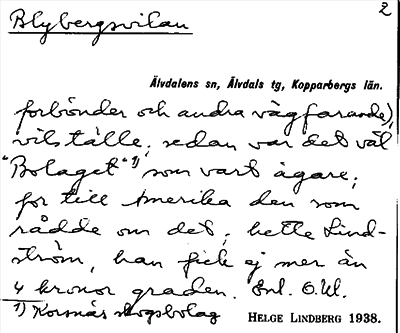 Blybergsvilan
2
Älvdalens sn, Älvdals tg, Kopparbergs län.
forbönder och andra vägfarande),
vilställe; sedan var det väl
"Bolaget"¹⁾ som vart ägare;
for till Amerika den som
rådde om det; hette Lind-
ström, han fick ej mer än
4 kronor graden. Enl. O.W.
1) Korsnäs skogsbolag
HELGE LINDBERG 1938.